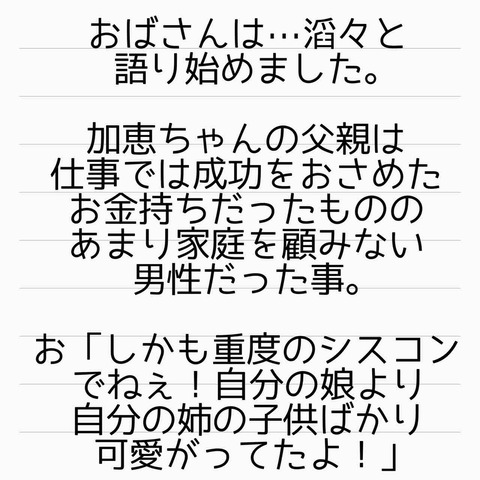 おばさんは…滔々と
語り始めました。
加恵ちゃんの父親は
仕事では成功をおさめた
お金持ちだったものの
あまり家庭を顧みない
男性だった事。
お「しかも重度のシスコン
でねぇ！自分の娘より
自分の姉の子供ばかり
可愛がってたよ！」